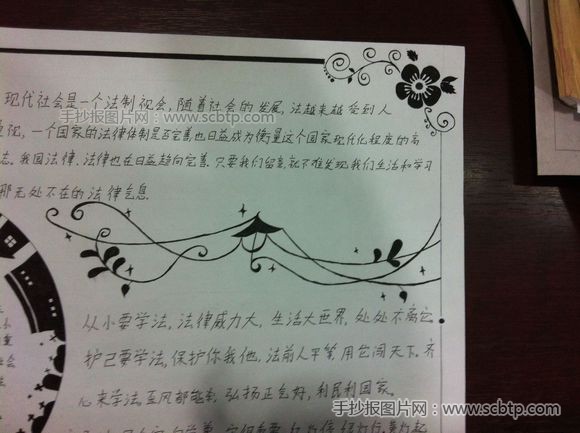 手抄报图片网 - www.scbtp.com
现代社会是一个法制视会,随着社会的发展,法越来越受到人
视,一个国家的法律体制是否完善也日益成为衡量这个国家现代化程度的高
志,我国法律、法律也在日益趋向完善.只要我们留意,就不难发现我们生活和学习
那无处不在的法律气息.
从小要学法,法律威力大,生活大世界,处处不离它.
护己要学法,保护你我他,法前人平等,用它闯天下.齐
心来学法,歪风都能刹,弘扬正气好,利民利国家.
手抄报图片网 - www.scbtp.com